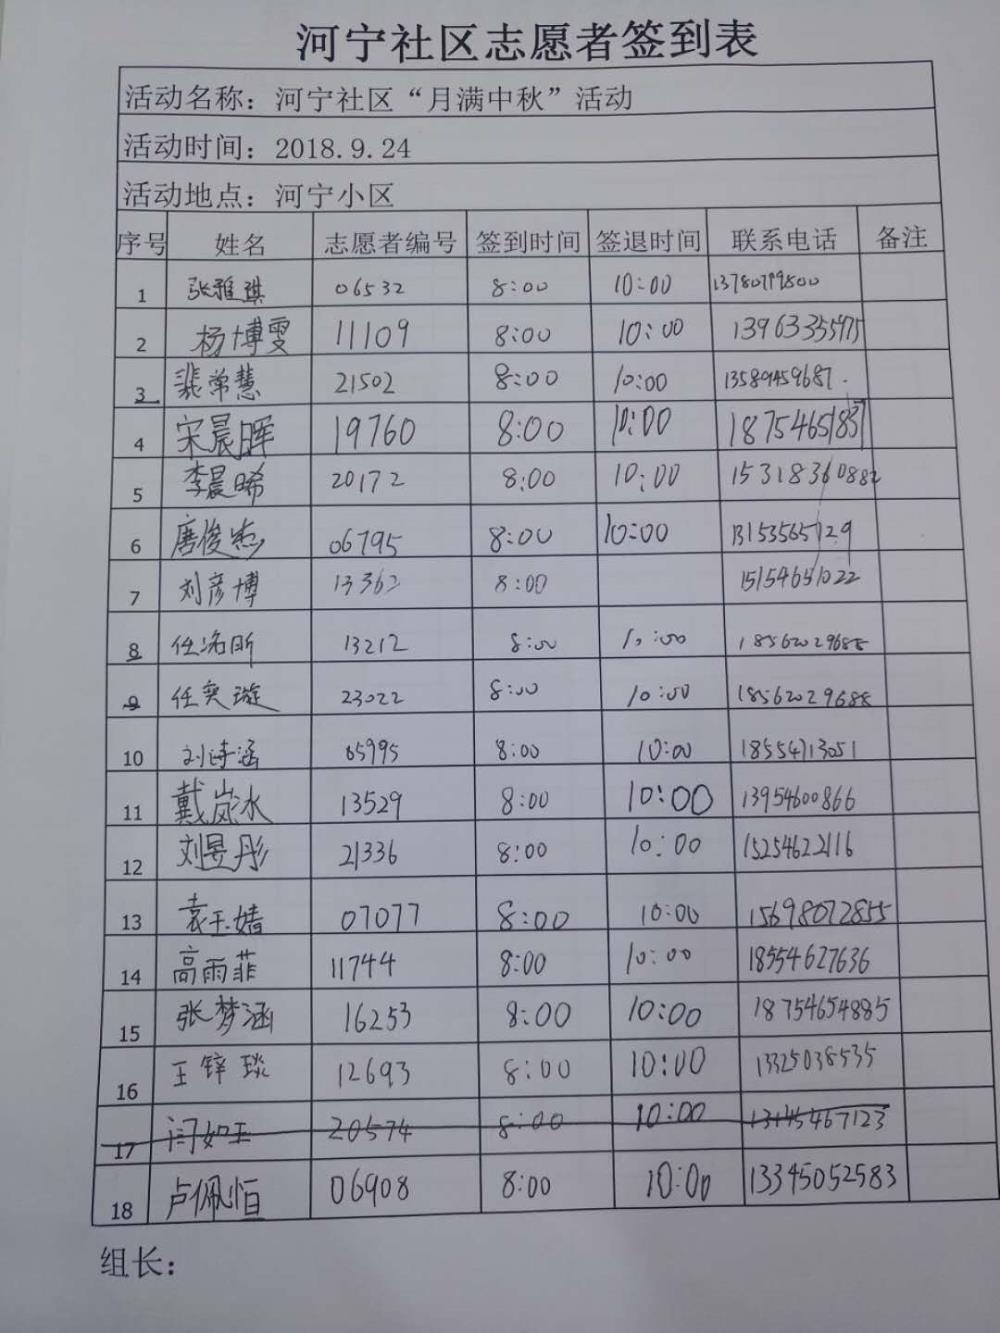 河宁社区志愿者签到表
活动名称：河宁社区“月满中秋”活动
活动时间：2018.9.24
活动地点：河宁小区
序号 姓名 志愿者编号 签到时间 签退时间 联系电话 备注
1 张雅琪 06532 8:00 10:00
2 杨博雯 11109 8:00 10:00 13963355975
3 裴常慧 21502 8:00 10:00 13589459687
4 宋晨晖 19760 8:00 10:00 18754651837
5 李晨晞 20172 8:00 10:00 15318360882
6 唐俊杰 06795 8:00 10:00 13153565129
7 刘彦博 13362 8:00 15154651022
8 任洺昕 13212 8:00 10:00 18562029688
9 任奕璇 23022 8:00 10:00 18562029688
10 刘诗涵 05995 8:00 10:00 18554713051
11 戴岚冰 13529 8:00 10:00 13954600866
12 刘昱彤 21336 8:00 10:00 15254622116
13 袁玉婧 07077 8:00 10:00 15698072855
14 高雨菲 11744 8:00 10:00 18554627636
15 张梦涵 16253 8:00 10:00 18754654885
16 王锌琰 12693 8:00 10:00 13325038535
17 闫如玉 20574 8:00 10:00 13145467123
18 卢佩恒 06908 8:00 10:00 13345052583
组长：